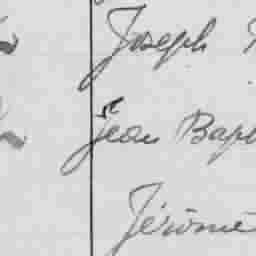 Joseph
St Jean Bapt
Jérôme